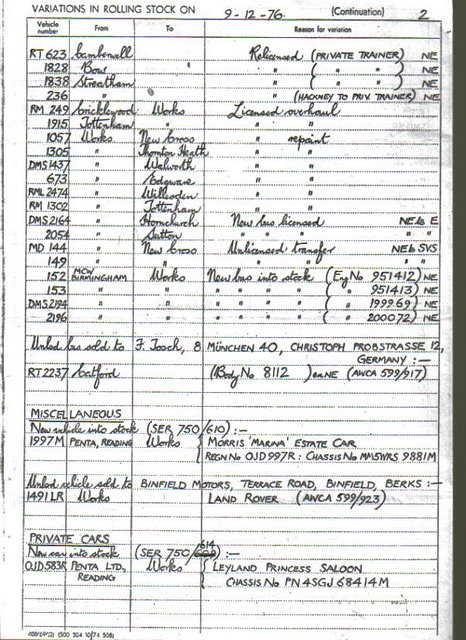 VARIATIONS IN ROLLING STOCK ON 9-12-76. (Continuation) 2
Vehicle number From To Reason for variation
RT 623 Camberwell Relicensed (PRIVATE TRAINER) NE
1828 Bow " ( " ) NE
1838 Streatham " ( " ) NE
236 " " (HACKNEY TO PRIV. TRAINER) NE
RM 249 Cricklewood Works Licensed overhaul
1915 Tottenham " " "
1057 Works New Cross " repaint
1305 " Thornton Heath " "
DMS 1437 " Walworth " "
673 " Edgware " "
RML 2474 " Willesden " "
RM 1302 " Tottenham " "
DMS 2164 " Hornchurch New bus licensed NE to E
2054 " Sutton " " " "
MD 144 " New Cross Unlicensed transfer NE to SVS
149 " " " " "
152 MCW BIRMINGHAM Works New bus into stock (Eng No 951412) NE
153 " " " " " " ( " 951413) NE
DMS 2194 " " " " " " ( " 199969) NE
2196 " " " " " " ( " 200072) NE
Unlcd bus sold to F. Tooch, 8 MÜNCHEN 40, CHRISTOPH PROBSTRASSE 12,
GERMANY :—
RT 2237 Catford (Body No 8112) ex NE (AWCA 599/917)
MISCELLANEOUS
New vehicle into stock (SER 750/610) :—
1997M PENTA, READING Works { MORRIS 'MARINA' ESTATE CAR
REGN No OJD 997R : CHASSIS No MA5WRS 9881M
Unlcd vehicle sold to BINFIELD MOTORS, TERRACE ROAD, BINFIELD, BERKS :—
1491LR Works LAND ROVER (AWCA 599/923)
PRIVATE CARS
614
New car into stock (SER 750/ ) :—
OJD 583R PENTA LTD., Works { LEYLAND PRINCESS SALOON
READING CHASSIS No PN4SGJ 68414M
408/69(2) (300 504 10/74 SOB)